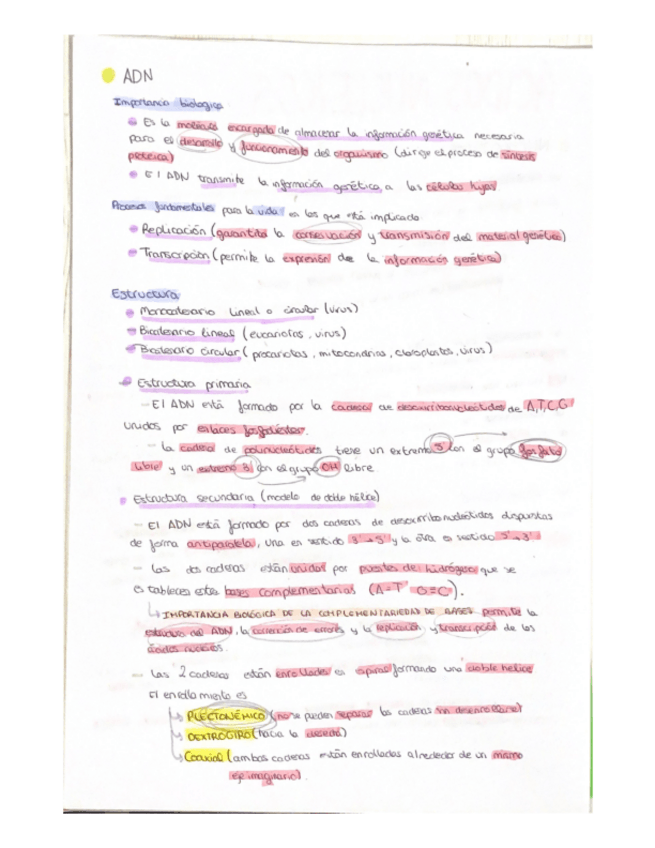 ADN
Importancia biológica
Es la molécula encargada de almacenar la información genética necesaria
para el desarrollo y funcionamiento del organismo (dirige el proceso de síntesis
proteica)
El ADN transmite la información genética a las células hijas
Procesos fundamentales para la vida en los que está implicado
Replicación (garantiza la conservación y transmisión del material genético)
Transcripción (permite la expresión de la información genética)
Estructura
Monocatenario lineal o circular (virus)
Bicatenario lineal (eucariotas, virus)
Bicatenario circular (procariotas, mitocondrias, cloroplastos, virus)
Estructura primaria
- El ADN está formado por la cadena de desoxirribonucleótidos de A,T,C,G
unidos por enlaces fosfodiéster.
- la cadena de polinucleótidos tiene un extremo 5' con el grupo fosfato
libre y un extremo 3' con el grupo OH libre.
Estructura secundaria (modelo de doble hélice)
- El ADN está formado por dos cadenas de desoxirribonucleótidos dispuestas
de forma antiparalela, una en sentido 3'→5' y la otra en sentido 5'→3'
- Las dos cadenas están unidas por puentes de hidrógeno que se
establecen entre bases complementarias (A=T G≡C).
↳ IMPORTANCIA BIOLÓGICA DE LA COMPLEMENTARIEDAD DE BASES permite la
estructura del ADN, la corrección de errores y la replicación y transcripción de los
ácidos nucleicos.
- Las 2 cadenas están enrolladas en espiral formando una doble hélice
El enrollamiento es
↳ PLECTONÉMICO (no se pueden separar las cadenas sin desenrollarse)
↳ DEXTRÓGIRO (hacia la derecha)
↳ Coaxial (ambas cadenas están enrolladas alrededor de un mismo
eje imaginario).